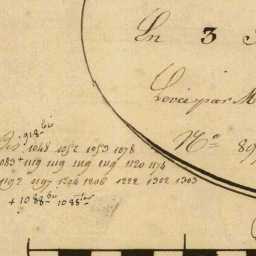 En 3
Levé par M
No 89
918 bis
1048 1052 1053 1078
1083 + 1119 1119 1119 1119 1120 1174
1192 1197 1204 1206 1222 1302 1303
+ 1088 bis 1088 ter